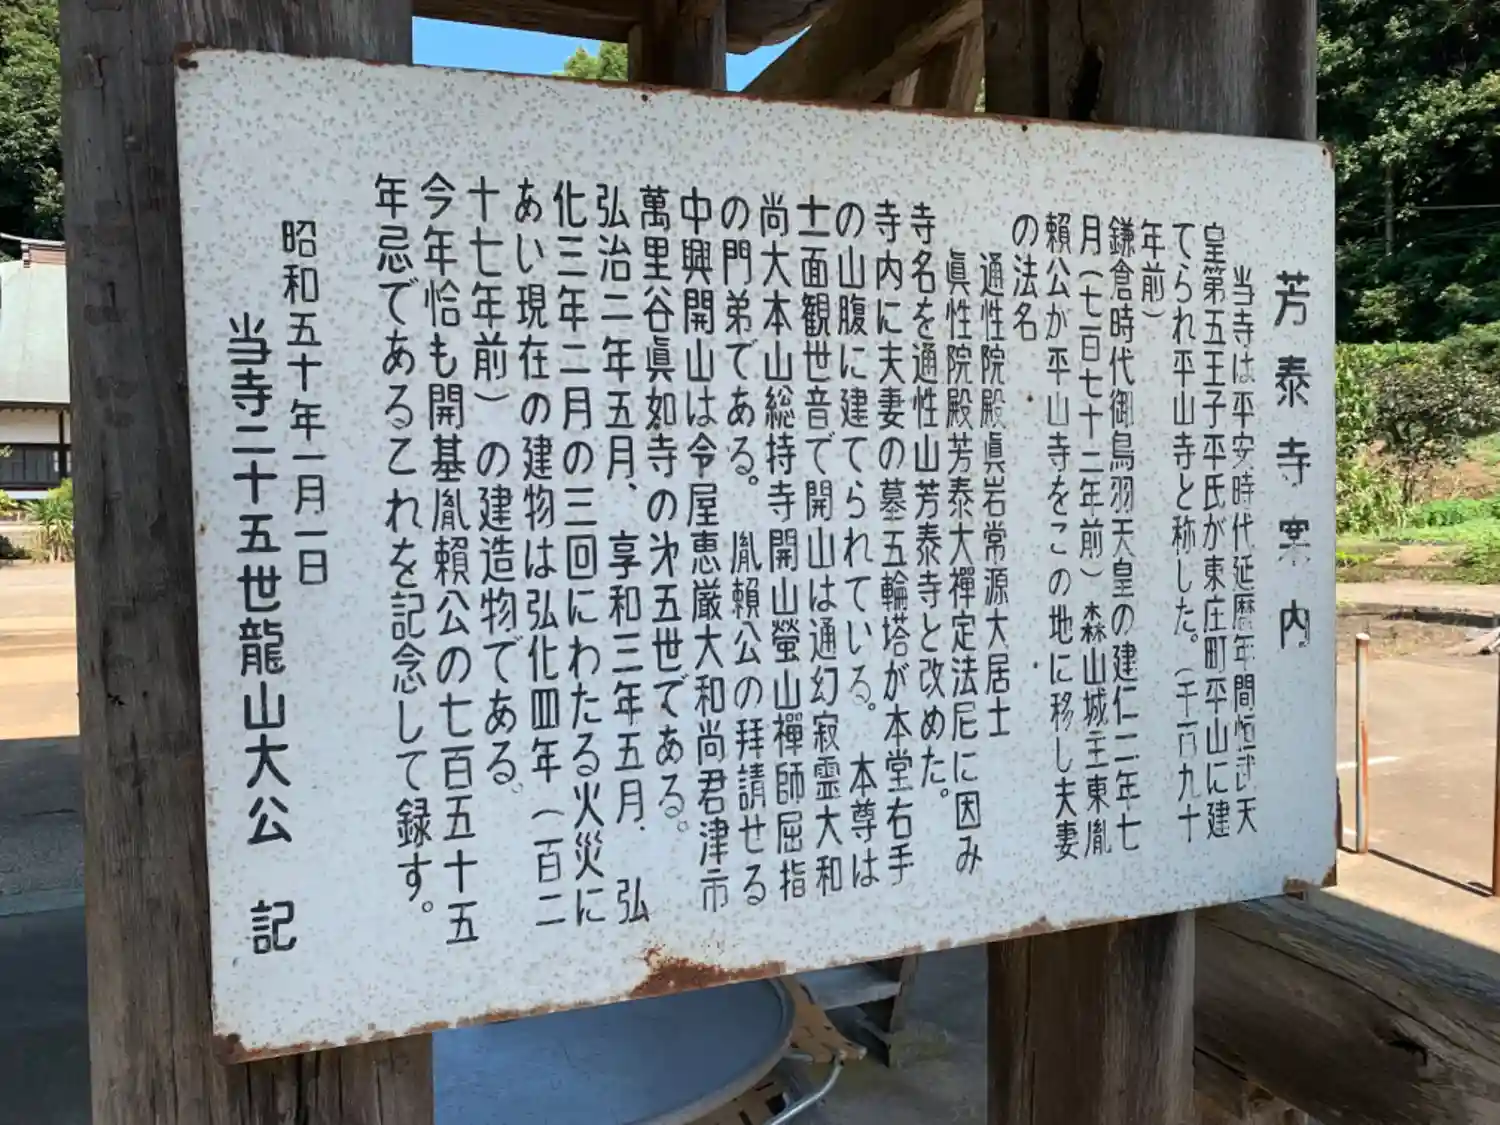 芳泰寺案内
当寺は平安時代延暦年間恒武天
皇第五王子平氏が東庄町平山に建
てられ平山寺と称した。(千百九十
年前)
鎌倉時代御鳥羽天皇の建仁二年七
月(七百七十二年前)森山城主東胤
頼公が平山寺をこの地に移し夫妻
の法名
通性院殿眞岩常源大居士
眞性院殿芳泰大禪定法尼に因み
寺名を通性山芳泰寺と改めた。
寺内に夫妻の墓五輪塔が本堂右手
の山腹に建てられている。本尊は
十一面観世音で開山は通幻寂霊大和
尚大本山総持寺開山螢山禪師屈指
の門弟である。胤頼公の拜請せる
中興開山は令屋恵厳大和尚君津市
萬里谷眞如寺の次五世である。
弘治二年五月、享和三年五月、弘
化三年二月の三回にわたる火災に
あい現在の建物は弘化四年(百二
十七年前)の建造物である。
今年恰も開基胤頼公の七百五十五
年忌であるこれを記念して録す。
昭和五十年一月一日
当寺二十五世龍山大公 記